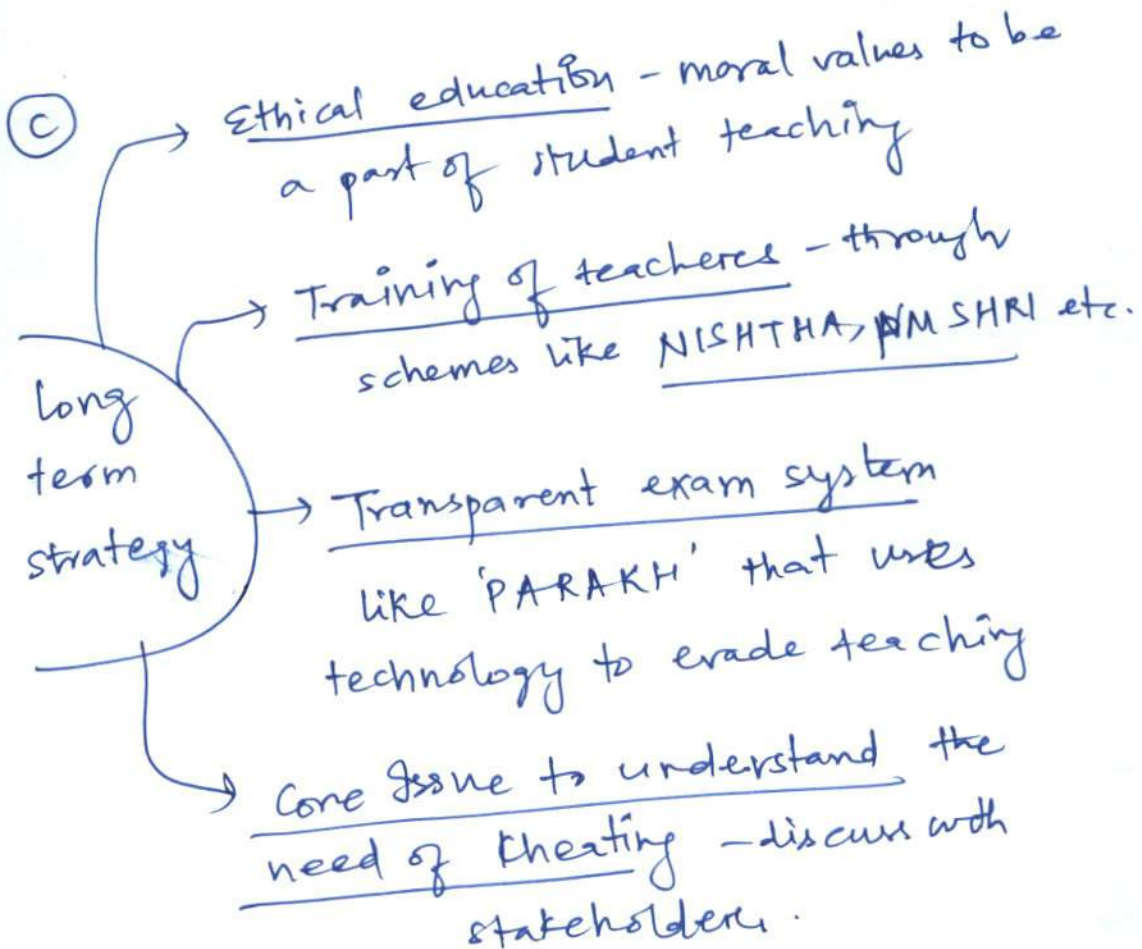 C
Ethical education - moral values to be
a part of student teaching
Training of teacheres - through
schemes like NISHTHA, PM SHRI etc.
Long
term
strategy
Transparent exam system
like 'PARAKH' that uses
technology to evade teaching
Core Issue to understand the
need of cheating - discuss with
stakeholders.